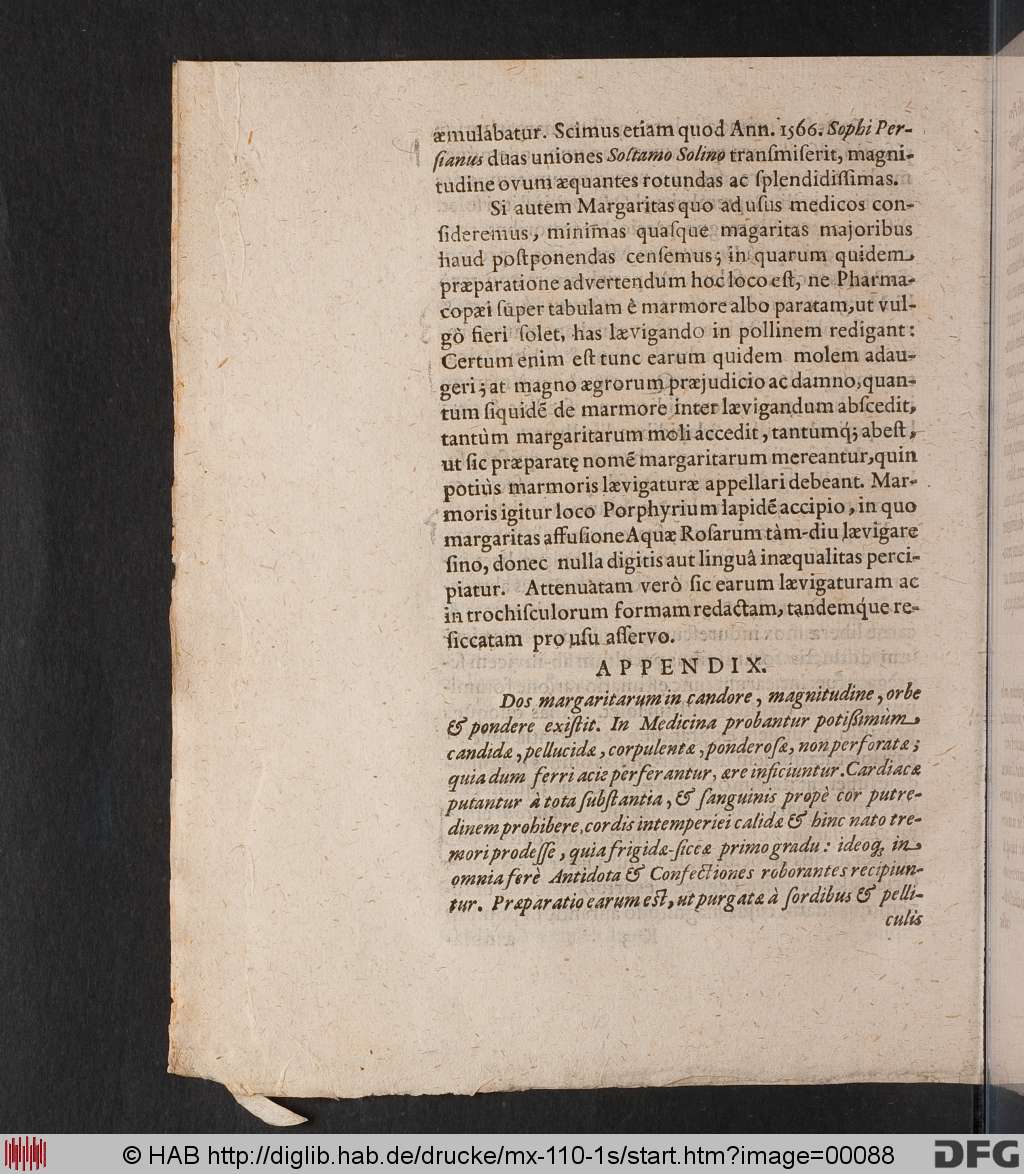 æmulabatur. Scimus etiam quod Ann. 1566. Sophi Per-
ſianus duas uniones Soltamo Solino tranſmiſerit, magni-
tudine ovum æquantes rotundas ac ſplendidiſſimas.
Si autem Margaritas quo ad uſus medicos con-
ſideremus, minimas quaſque magaritas majoribus
haud poſtponendas cenſemus; in quarum quidem
præparatione advertendum hoc loco eſt, ne Pharma-
copæi ſuper tabulam è marmore albo paratam, ut vul-
gò fieri ſolet, has lævigando in pollinem redigant:
Certum enim eſt tunc earum quidem molem adau-
geri; at magno ægrorum præjudicio ac damno, quan-
tum ſiquidē de marmore inter lævigandum abſcedit,
tantùm margaritarum moli accedit, tantumq́; abeſt,
ut ſic præparatę nomē margaritarum mereantur, quin
potiùs marmoris lævigaturæ appellari debeant. Mar-
moris igitur loco Porphyrium lapidē accipio, in quo
margaritas affuſione Aquæ Roſarum tàm-diu lævigare
ſino, donec nulla digitis aut linguâ inæqualitas perci-
piatur. Attenuatam verò ſic earum lævigaturam ac
in trochiſculorum formam redactam, tandemq́ue re-
ſiccatam pro uſu aſſervo.
APPENDIX.
Dos margaritarum in candore, magnitudine, orbe
& pondere exiſtit. In Medicina probantur potißimùm
candidæ, pellucidæ, corpulentæ, ponderoſæ, non perforatæ;
quia dum ferri acie perferantur, ære inficiuntur. Cardiacæ
putantur à tota ſubſtantia, & ſanguinis propè cor putre-
dinem prohibere, cordis intemperiei calidæ & hinc nato tre-
mori prodeſſe, quia frigidæ-ſiccæ primo gradu: ideoq; in
omnia ferè Antidota & Confectiones roborantes recipiun-
tur. Præparatio earum eſt, ut purgatæ à ſordibus & pelli-
culis
© HAB http://diglib.hab.de/drucke/mx-110-1s/start.htm?image=00088
DFG